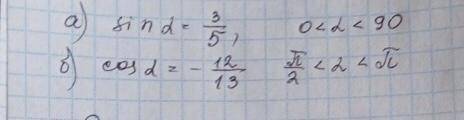 а) sin α = 3/5, 0 < α < 90
б) cos α = - 12/13 π/2 < α < π